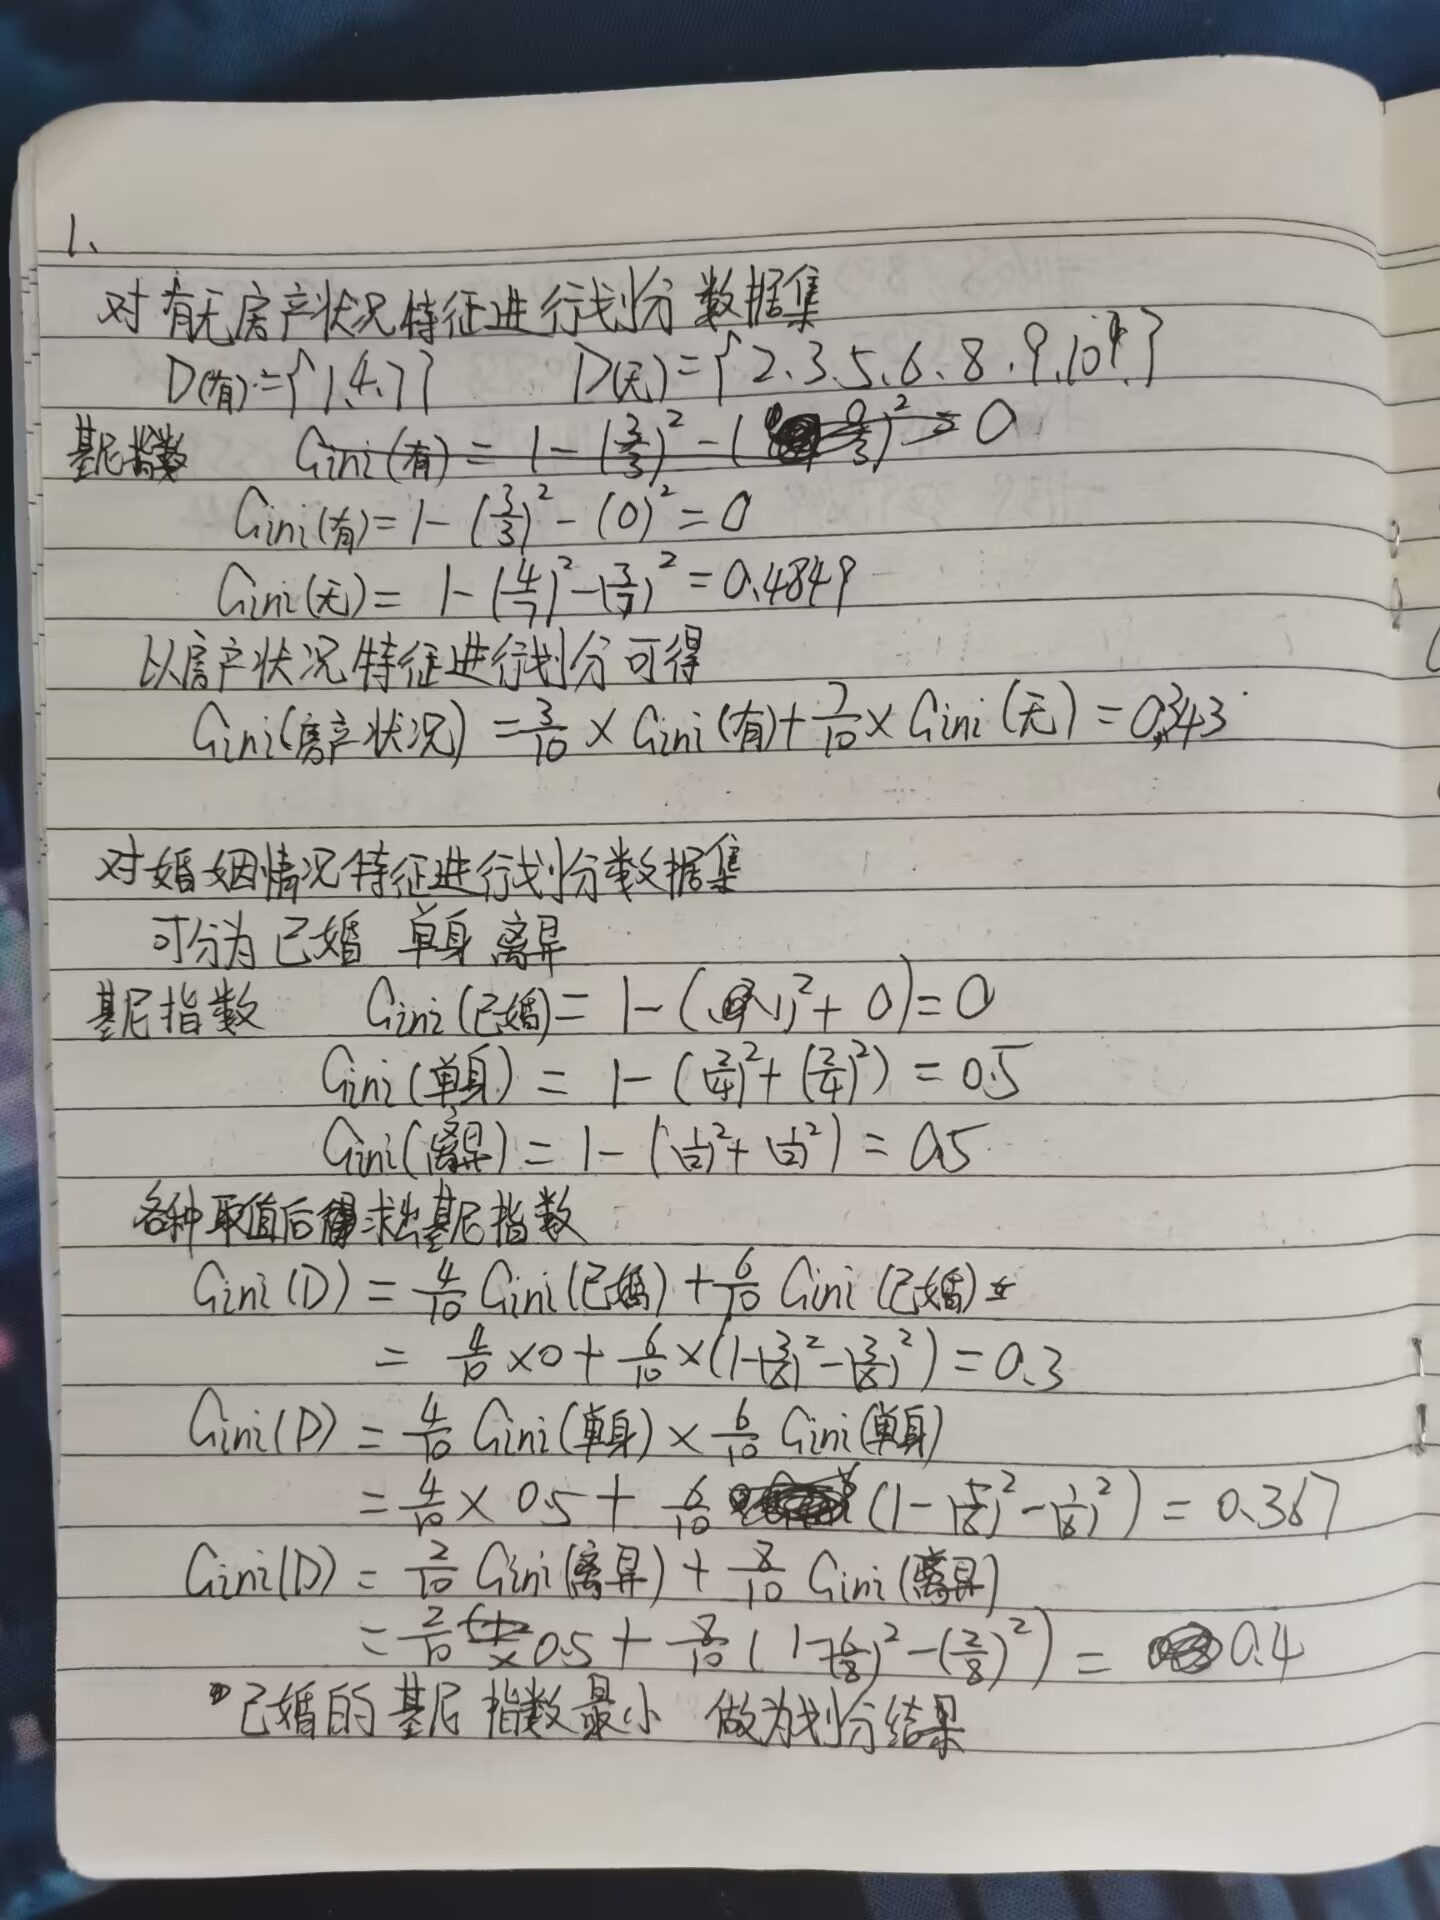 1、
对有无房产状况特征进行划分数据集
D(有)={1,4,7} D(无)={2、3、5、6、8、9、10}
基尼指数 Gini(有) = 1-(3/3)²-(0/3)² = 0
Gini(有)=1-(3/3)²-(0)²=0
Gini(无)= 1-(4/7)²-(3/7)²=0.4849
以房产状况特征进行划分可得
Gini(房产状况)=3/10×Gini(有)+7/10×Gini(无)=0.343
对婚姻情况特征进行划分数据集
可分为 已婚 单身 离异
基尼指数 Gini(已婚)= 1-((1)²+0)=0
Gini(单身) = 1-((2/4)²+(2/4)²) = 0.5
Gini(离异) = 1-((1/2)²+(1/2)²) = 0.5
各种取值后求出基尼指数
Gini(D) = 4/10 Gini(已婚)+6/10 Gini(已婚)
= 4/10×0+6/10×(1-(3/6)²-(3/6)²) = 0.3
Gini(D) = 4/10 Gini(单身)×6/10 Gini(单身)
=4/10×0.5+6/10(1-(5/6)²-(1/6)²) = 0.367
Gini(D) = 2/10 Gini(离异)+8/10 Gini(离异)
=2/10×0.5+8/10(1-(6/8)²-(2/8)²) = 0.4
已婚的基尼指数最小 做为划分结果